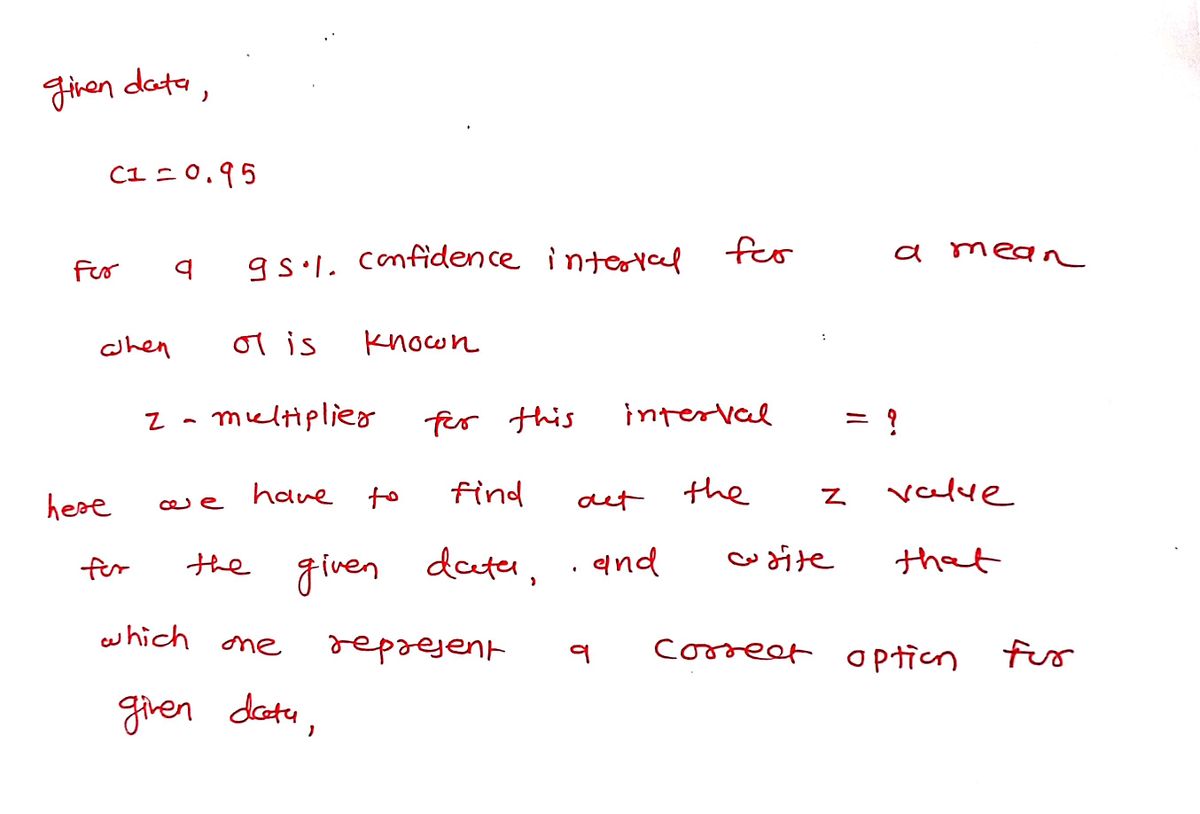 given data,
CI = 0.95
For a 95%. confidence interval for a mean
when σ is known
z - multiplier for this interval = ?
here we have to find out the z value
for the given data, . and write that
which one represent a correct option for
given data,